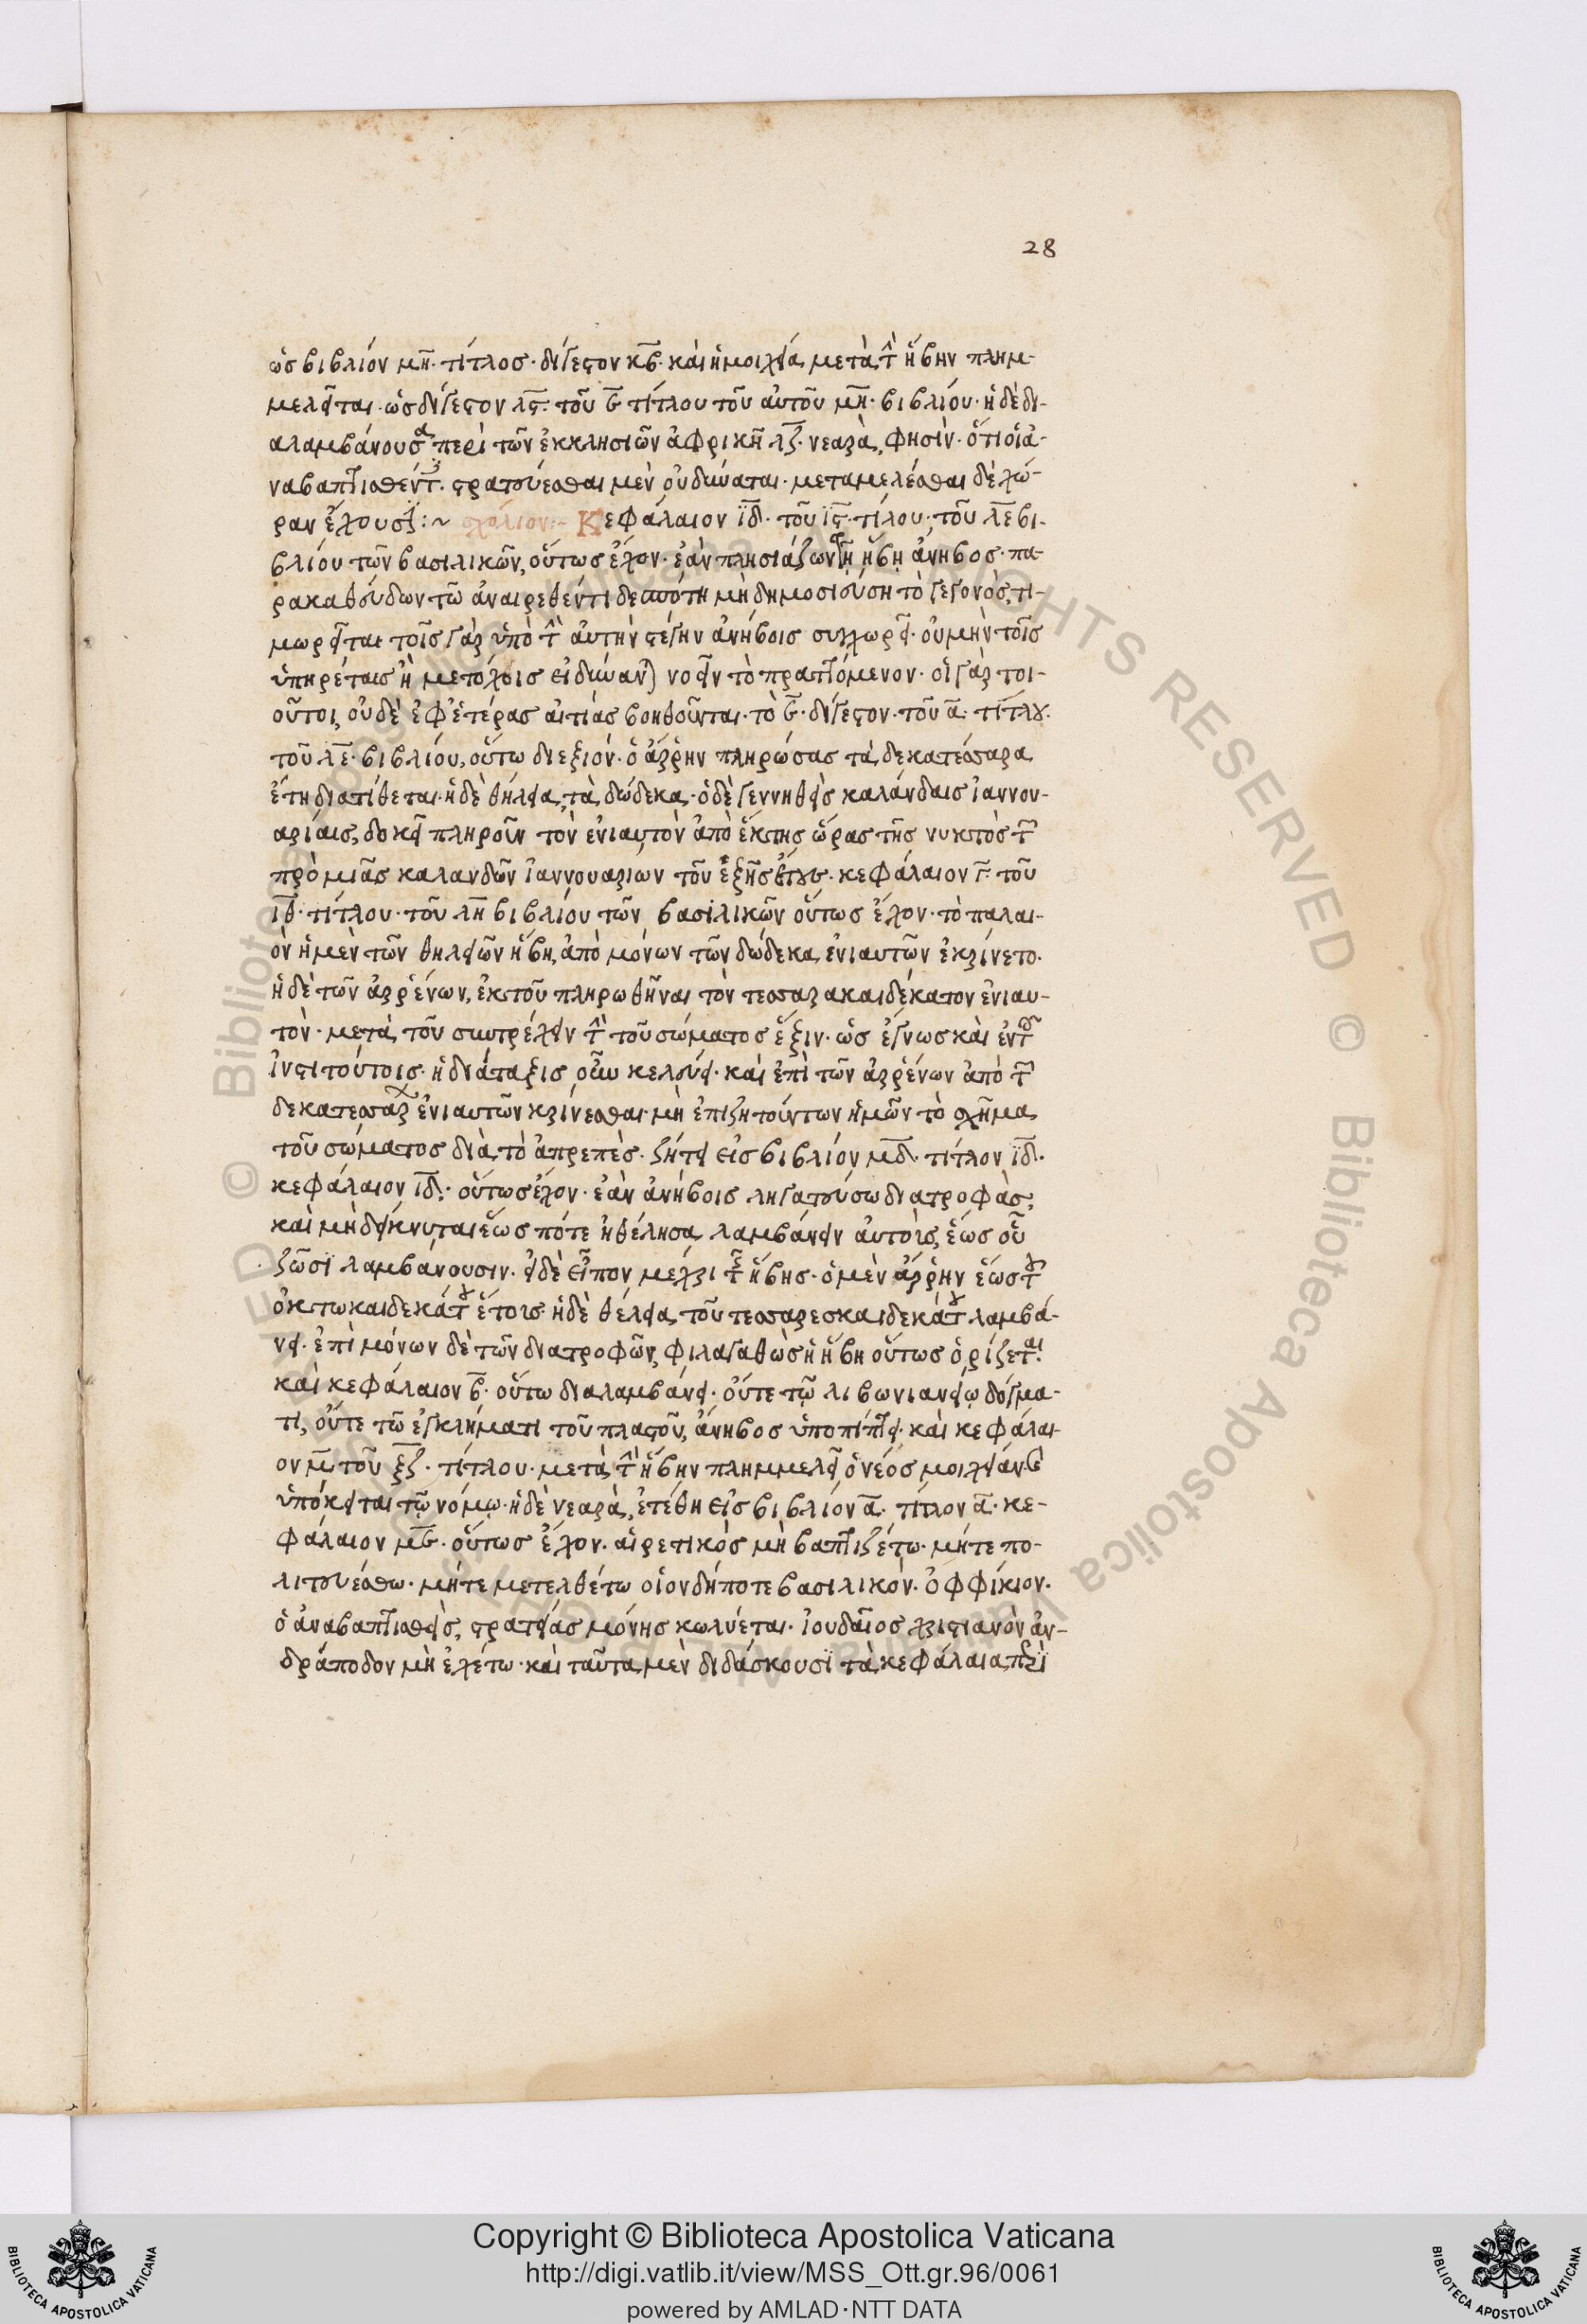 28
ὡς βιβλίον μη̄· τίτλος· δίγεστον κβ̄· καὶ ἡ μοιχεία μετὰ τὴν ἥβην πλημ-
μελεῖται· ὡς δίγεστον λϛ̄· τοῦ ε̄ τίτλου τοῦ αὐτοῦ μη̄· βιβλίου· ἡ δὲ δι-
αλαμβάνουσα περὶ τῶν ἐκκλησιῶν ἀφρικῆς λζ̄· νεαρὰ, φησὶν· ὅτι οἱ ἀ-
ναβαπτισθέντες· στρατεύεσθαι μὲν οὐ δύνανται· μεταμελέσθαι δὲ χώ-
ραν ἔχουσι :~ σχόλιον:- Κεφάλαιον ῑδ̄· τοῦ ῑϛ̄· τίλου· τοῦ λ̄ε̄ βι-
βλίου τῶν βασιλικῶν, οὕτως ἔχον· ἐὰν πλησιάζων τῇ ἥβῃ ἄνηβος· πα-
ρακαθεύδων τῶ ἀναιρεθέντι δεσπότῃ μὴ δημοσιεύσῃ τὸ γεγονὸς, τι-
μωρεῖται τοῖς γὰρ ὑπὸ τὴν αὐτὴν στέγην ἀνήβοις συγχωρεῖ· οὐ μὴν τοῖς
ὑπηρέταις ἢ μετόχοις εἰ δύνανται νοεῖν τὸ πραττόμενον· οἱ γὰρ τοι-
οῦτοι, οὐδὲ ἐφ' ἑτέρας αἰτίας βοηθοῦνται· τὸ ε̄· δίγεστον· τοῦ ᾱ· τίτλου·
τοῦ λε̄· βιβλίου, οὕτω διεξιόν· ὁ ἄρρην πληρώσας τὰ δεκατέσσαρα
ἔτη διατίθεται· ἡ δὲ θήλεια, τὰ δώδεκα· ὁ δὲ γεννηθεὶς καλάνδαις ἰαννου-
αρίαις, δοκεῖ πληροῦν τὸν ἐνιαυτὸν ἀπὸ ἕκτης ὥρας τῆς νυκτὸς τῆς
πρὸ μιᾶς καλανδῶν ἰαννουαρίων τοῦ ἑξῆς ἔτους· κεφάλαιον γ̄· τοῦ
ῑθ̄· τίτλου· τοῦ λη̄ βιβλίου τῶν βασιλικῶν οὕτως ἔχον· τὸ παλαι-
ὸν ἡ μὲν τῶν θηλειῶν ἥβη, ἀπὸ μόνων τῶν δώδεκα ἐνιαυτῶν ἐκρίνετο·
ἡ δὲ τῶν ἀρρένων, ἐκ τοῦ πληρωθῆναι τὸν τεσσαρακαιδέκατον ἐνιαυ-
τὸν· μετὰ τοῦ συντρέχειν τὴν τοῦ σώματος ἕξιν· ὡς ἔγνως καὶ ἐν τοῖς
ἰνστιτούτοις· ἡ διάταξις οὖν κελεύει· καὶ ἐπὶ τῶν ἀρρένων ἀπὸ τῶν
δεκατεσσάρων ἐνιαυτῶν κρίνεσθαι· μὴ ἐπιζητούντων ἡμῶν τὸ σχῆμα
τοῦ σώματος διὰ τὸ ἀπρεπὲς· ζήτει εἰς βιβλίον μδ̄· τίτλον ῑδ̄·
κεφάλαιον ῑδ̄· οὕτως ἔχον· ἐὰν ἀνήβοις ληγατεύσω διατροφὰς,
καὶ μὴ δείκνυται ἕως πότε ἠθέλησα λαμβάνειν αὐτοὶς, ἕως οὗ
ζῶσϊ λαμβάνουσιν· εἰ δὲ εἶπον μέχρι τῆς ἥβης· ὁ μὲν ἄρρην ἕως τοῦ
ὀκτωκαιδεκάτου ἔτοις ἡ δὲ θέλεια τοῦ τεσσαρεσκαιδεκάτου λαμβά-
νει· ἐπὶ μόνων δὲ τῶν διατροφῶν, φιλαγάθως ἡ ἥβη οὕτως ὁρίζεται·
καὶ κεφάλαιον β̄· οὕτω διαλαμβάνει· οὔτε τῷ λιβωνιανείῳ δόγμα-
τι, οὔτε τῶ ἐγκλήματι τοῦ πλαστοῦ, ἄνηβος ὑποπίπτει· καὶ κεφάλαι-
ον μ̄ τοῦ ξζ̄· τίτλου· μετὰ τὴν ἥβην πλημμελεῖ ὁ νέος μοιχείαν καὶ
ὑπόκειται τῷ νόμῳ· ἡ δὲ νεαρὰ, ἐτέθη εἰς βιβλίον ᾱ· τίτλον ᾱ· κε-
φάλαιον με̄· οὕτως ἔχον· αἱρετικὸς μὴ βαπτιζέτω· μήτε πο-
λιτευέσθω· μήτε μετελθέτω οἱονδήποτε βασιλικὸν· ὀφφίκιον·
ὁ ἀναβαπτισθεὶς, στρατείας μόνης κωλύεται· ἰουδαῖος χριστιανὸν ἀν-
δράποδον μὴ ἐχέτω· καὶ ταῦτα μὲν διδάσκουσϊ τὰ κεφάλαια περὶ
Copyright © Biblioteca Apostolica Vaticana
http://digi.vatlib.it/view/MSS_Ott.gr.96/0061
powered by AMLAD·NTT DATA